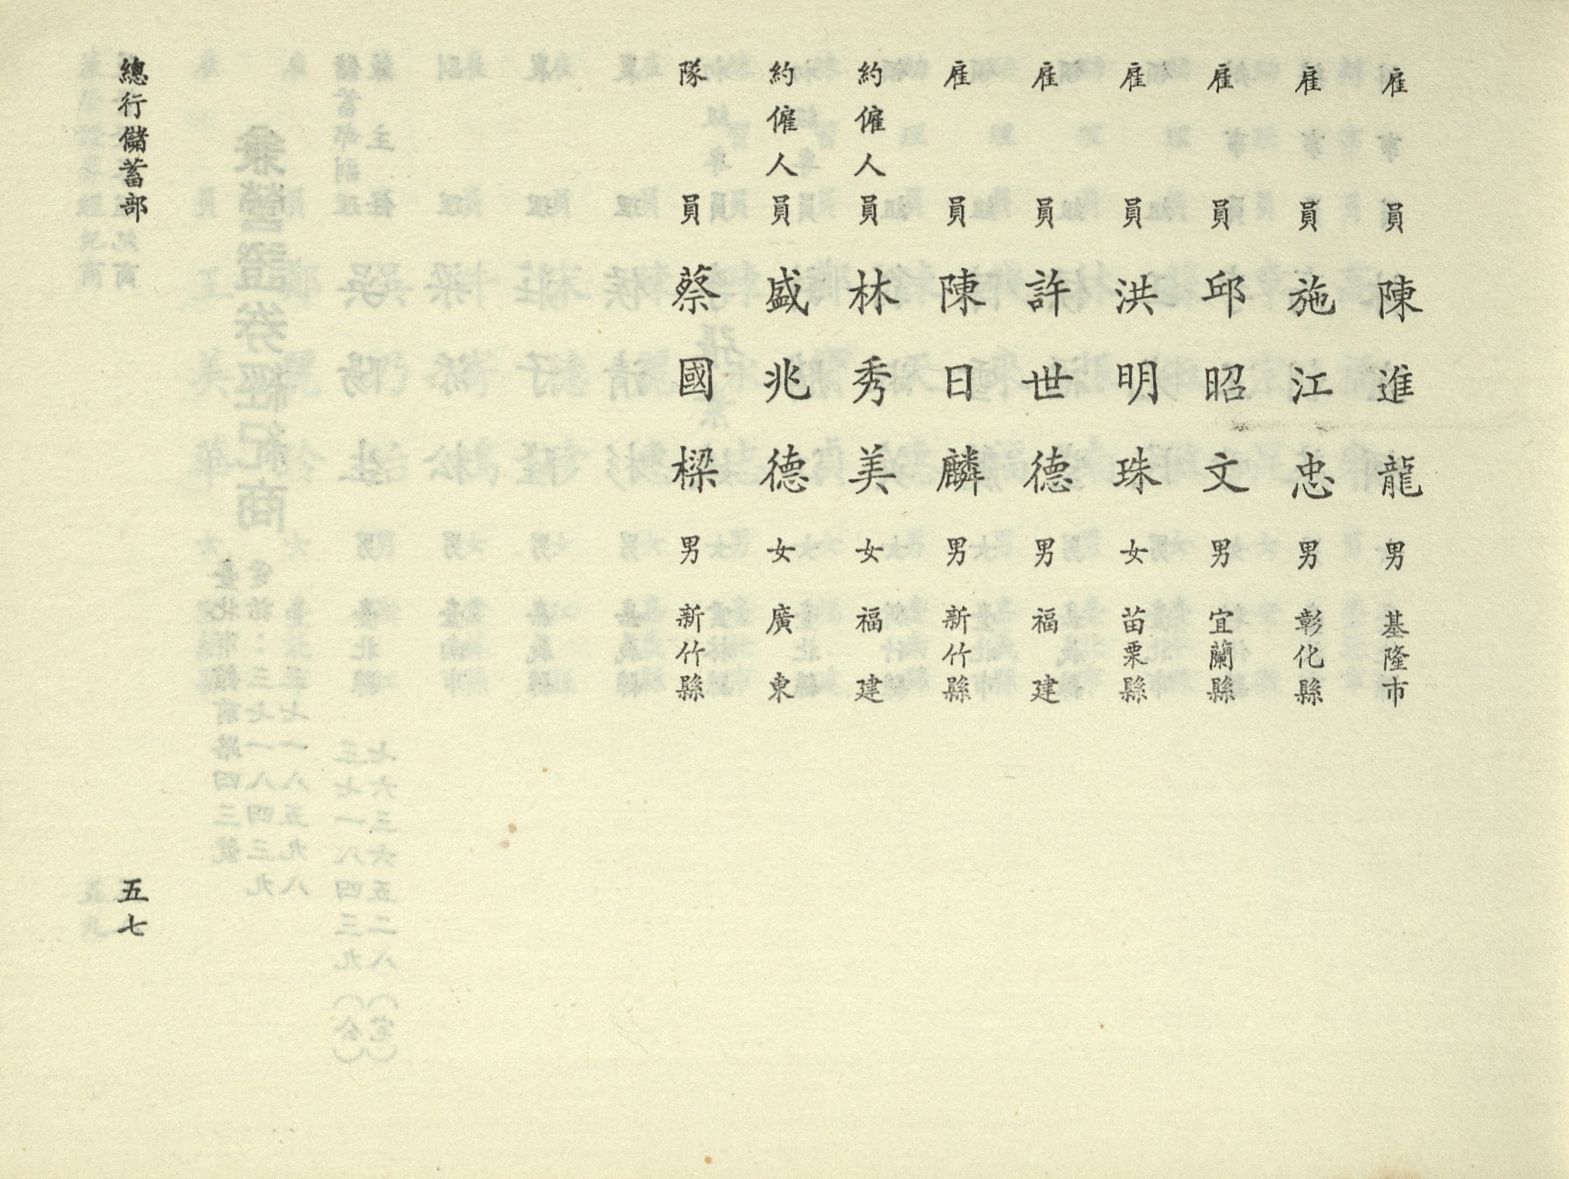 雇員 陳進龍 男 基隆市
雇員 施江忠 男 彰化縣
雇員 邱昭文 男 宜蘭縣
雇員 洪明珠 女 苗栗縣
雇員 許世德 男 福建
雇員 陳日麟 男 新竹縣
約僱人員 林秀美 女 福建
約僱人員 盛兆德 女 廣東
隊員 蔡國樑 男 新竹縣
總行儲蓄部 五七